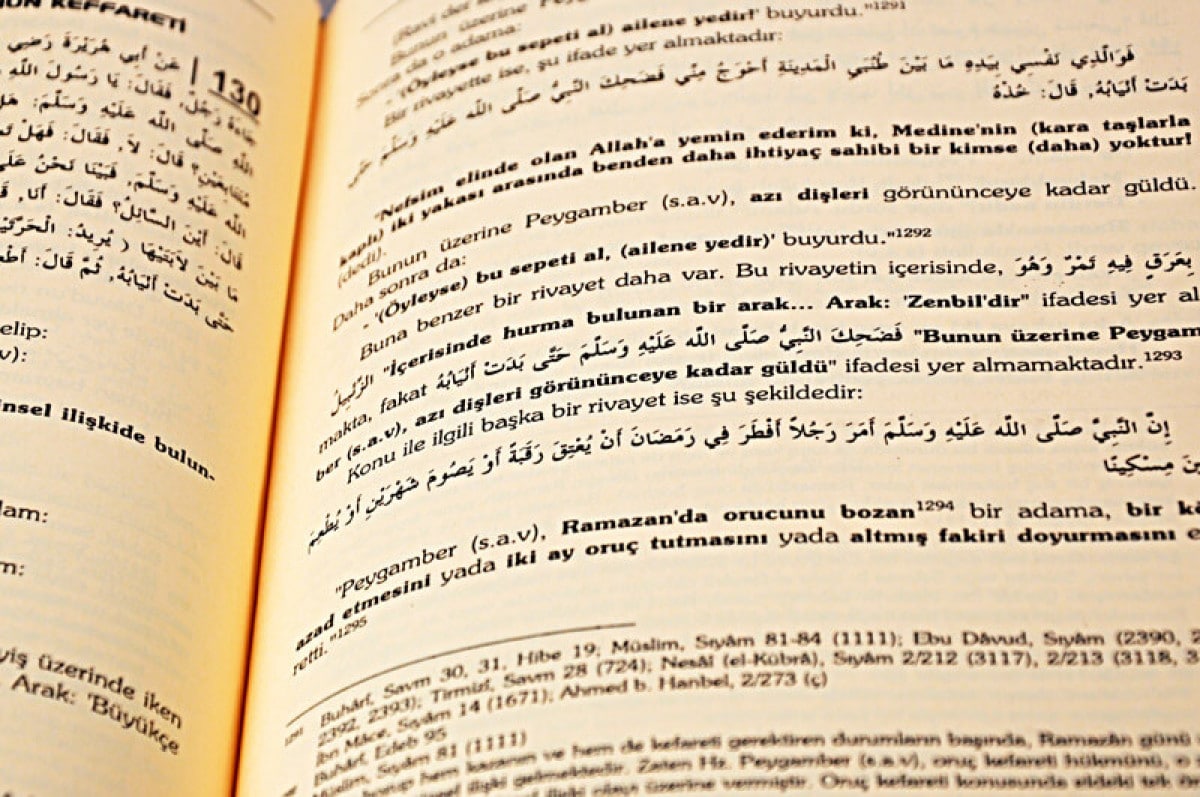 ÜN KEFFARETİ
130
عَنْ أَبِي هُرَيْرَةَ رَضِيَ
جَاءَهُ رَجُلٌ، فَقَالَ: يَا رَسُولَ اللَّهِ
اللَّهِ صَلَّى اللَّهُ عَلَيْهِ وَسَلَّمَ: هَلْ
مُتَتَابِعَيْنِ؟ قَالَ: لاَ، فَقَالَ: فَهَلْ
اللهُ عَلَيْهِ وَسَلَّمَ، فَبَيْنَا نَحْنُ عَلَى
قَالَ: أَيْنَ السَّائِلُ؟ فَقَالَ: أَنَا،
مَا بَيْنَ لاَبَتَيْهَا ( يُرِيدُ: الْحَرَّتَيْنِ
حَتَّى بَدَتْ أَنْيَابُهُ، ثُمَّ قَالَ:
elip:
v):
insel ilişkide bulun-
am:
m:
yiş üzerinde iken
Arak: 'Büyükçe
(Ravi der
Bunun üzerine
Sonra da o adama:
- '(Öyleyse bu sepeti al) ailene yedir!' buyurdu."1291
Bir rivayette ise, şu ifade yer almaktadır:
فَوَالَّذِي نَفْسِي بِيَدِهِ مَا بَيْنَ طُنُبَيِ الْمَدِينَةِ أَحْوَجُ مِنِّي فَضَحِكَ النَّبِيُّ صَلَّى اللَّه عَلَيْهِ وَسَلَّمَ حَتَّى
بَدَتْ أَنْيَابُهُ, قَالَ: خُذْهُ
"Nefsim elinde olan Allah'a yemin ederim ki, Medine'nin (kara taşlarla
kaplı) iki yakası arasında benden daha ihtiyaç sahibi bir kimse (daha) yoktur!
(dedi).
Bunun üzerine Peygamber (s.a.v), azı dişleri görününceye kadar güldü.
Daha sonra da:
- '(Öyleyse) bu sepeti al, (ailene yedir)' buyurdu."1292
Buna benzer bir rivayet daha var. Bu rivayetin içerisinde, بِعَرَقٍ فِيهِ تَمْرٌ وَهُوَ
الزَّنْبِيلُ "İçerisinde hurma bulunan bir arak... Arak: 'Zenbil'dir" ifadesi yer al
makta, fakat فَضَحِكَ النَّبِيُّ صَلَّى اللَّه عَلَيْهِ وَسَلَّمَ حَتَّى بَدَتْ أَنْيَابُهُ "Bunun üzerine Peygam
ber (s.a.v), azı dişleri görününceye kadar güldü" ifadesi yer almamaktadır.1293
Konu ile ilgili başka bir rivayet ise şu şekildedir:
إِنَّ النَّبِيَّ صَلَّى اللَّه عَلَيْهِ وَسَلَّمَ أَمَرَ رَجُلاً أَفْطَرَ فِي رَمَضَانَ أَنْ يُعْتِقَ رَقَبَةً أَوْ يَصُومَ شَهْرَيْنِ أَوْ يُطْعِمَ
ينَ مِسْكِينًا
"Peygamber (s.a.v), Ramazan'da orucunu bozan1294 bir adama, bir kö
azad etmesini yada iki ay oruç tutmasını yada altmış fakiri doyurmasını e
retti."1295
1291 Buhârî, Savm 30, 31, Hibe 19; Müslim, Sıyâm 81-84 (1111); Ebu Dâvud, Sıyâm (2390, 2
2392, 2393); Tirmizî, Savm 28 (724); Nesâî (el-Kübrâ), Sıyâm 2/212 (3117), 2/213 (3118, 3
İbn Mâce, Sıyâm 14 (1671); Ahmed b. Hanbel, 2/273 (ç)
Buhârî, Edeb 95
Müslim, Sıyâm 81 (1111)
bozup hem kazanın ve hem de kefareti gerektiren durumların başında, Ramazân günü
ilişki gelmektedir. Zaten Hz. Peygamber (s.a.v), oruç kefareti hükmünü, o
ilişki olayı üzerine vermiştir. Oruç kefareti konusunda eldeki tek